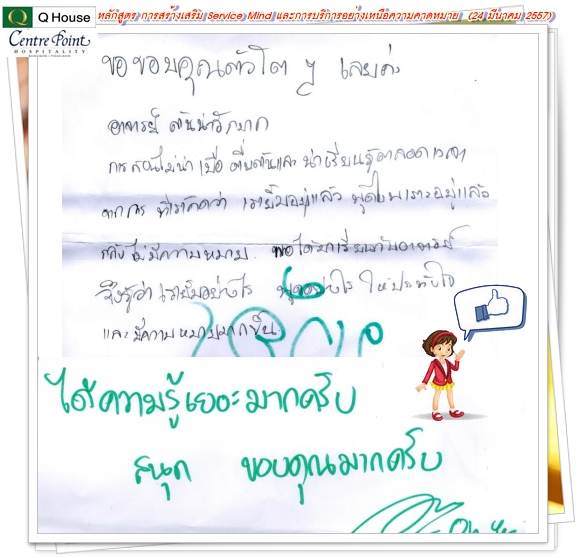 Q House
หลักสูตร การสร้างเสริม Service Mind และการบริการอย่างเหนือความคาดหมาย (24 มีนาคม 2557)
Centre Point
HOSPITALITY
ขอขอบคุณตัวโต ๆ เลยค่ะ
อาจารย์ น่ารักมาก
การสอนไม่น่าเบื่อ ตื่นเต้นและน่าเรียนรู้ตลอดเวลา
จากการ ที่เราคิดว่า เรายิ้มอยู่แล้ว พูดไพเราะอยู่แล้ว
กลับไม่มีความหมาย พอได้มาเรียนกับอาจารย์
จึงรู้ว่า เรายิ้มอย่างไร พูดอย่างไร ให้ประทับใจ
และมีความหมายมากขึ้น
ได้ความรู้เยอะมากครับ
สนุก ขอบคุณมากครับ